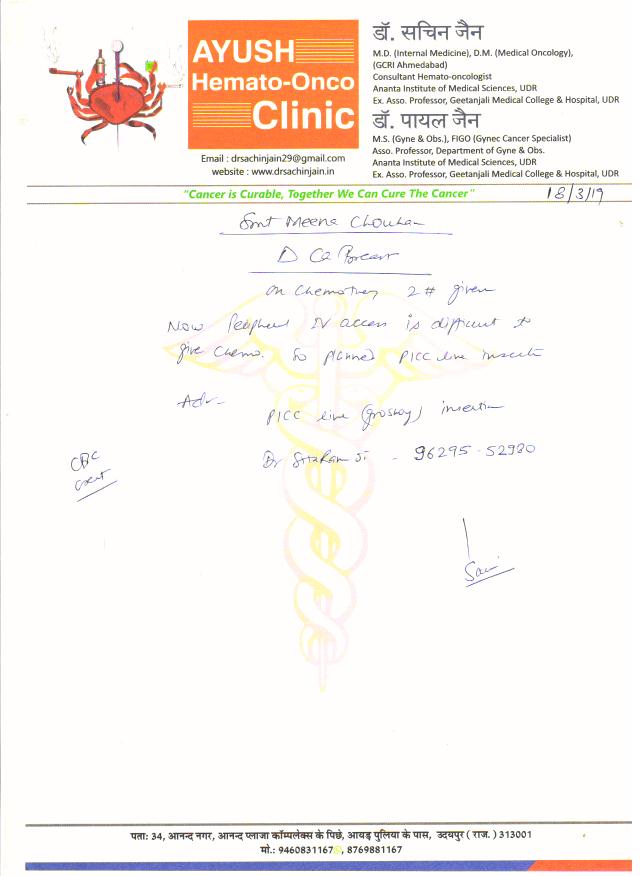 AYUSH
Hemato-Onco
Clinic
Email : drsachinjain29@gmail.com
website : www.drsachinjain.in
डॉ. सचिन जैन
M.D. (Internal Medicine), D.M. (Medical Oncology),
(GCRI Ahmedabad)
Consultant Hemato-oncologist
Ananta Institute of Medical Sciences, UDR
Ex. Asso. Professor, Geetanjali Medical College & Hospital, UDR
डॉ. पायल जैन
M.S. (Gyne & Obs.), FIGO (Gynec Cancer Specialist)
Asso. Professor, Department of Gyne & Obs.
Ananta Institute of Medical Sciences, UDR
Ex. Asso. Professor, Geetanjali Medical College & Hospital, UDR
"Cancer is Curable, Together We Can Cure The Cancer"
18/3/19
Smt Meena Chouhan
D Ca Breast
on Chemotherapy 2# given
Now Peripheral IV access is difficult to
give Chemo. So planned PICC line insertion
Adv-
PICC line (groshong) insertion
CBC
creat
Dr Sitaram Ji - 96295-52980
पता: 34, आनन्द नगर, आनन्द प्लाजा कॉम्पलेक्स के पिछे, आयड़ पुलिया के पास, उदयपुर ( राज. ) 313001
मो.: 9460831167, 8769881167